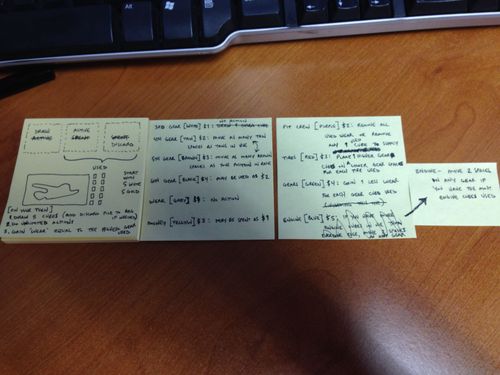 DRAW
ACTIVE
DISCARD
USED
START
WITH
5 WHITE
5 GOLD
[ON YOUR TURN]
1. DRAW 5 CUBES (ADD DISCARD PILE TO BAG
IF NEEDED)
2. DO UNLIMITED ACTIONS
3. GAIN 'WEAR' EQUAL TO THE HIGHEST GEAR
USED
NO ACTION
3RD GEAR [WHITE] $1:
4TH GEAR [TAN] $2: MOVE AS MANY TAN
SPACES AS
5TH GEAR [BROWN] $3: MOVE AS MANY BROWN
SPACES AS
6TH GEAR [BLACK] $4: MAY BE USED AS $2
WEAR [GREY] $0: NO ACTION
MONEY [YELLOW] $3: MAY BE SPENT AS $1
PIT CREW [PURPLE] $2: REMOVE ALL
USED WEAR OR REMOVE
ANY 1 CUBE TO SUPPLY
TIRES [RED] $3: PLACE 1 HIGHER GEAR
CUBE IN LOWER GEAR
FOR EACH TIRE USED
GEARS [GREEN] $4: GAIN 1 LESS WEAR
FOR EACH GEAR CUBE USED
ENGINE [BLUE] $5:
ENGINE - MOVE 2 SPACES
IN ANY GEAR IF
YOU HAVE THE MOST
ENGINE CUBES USED